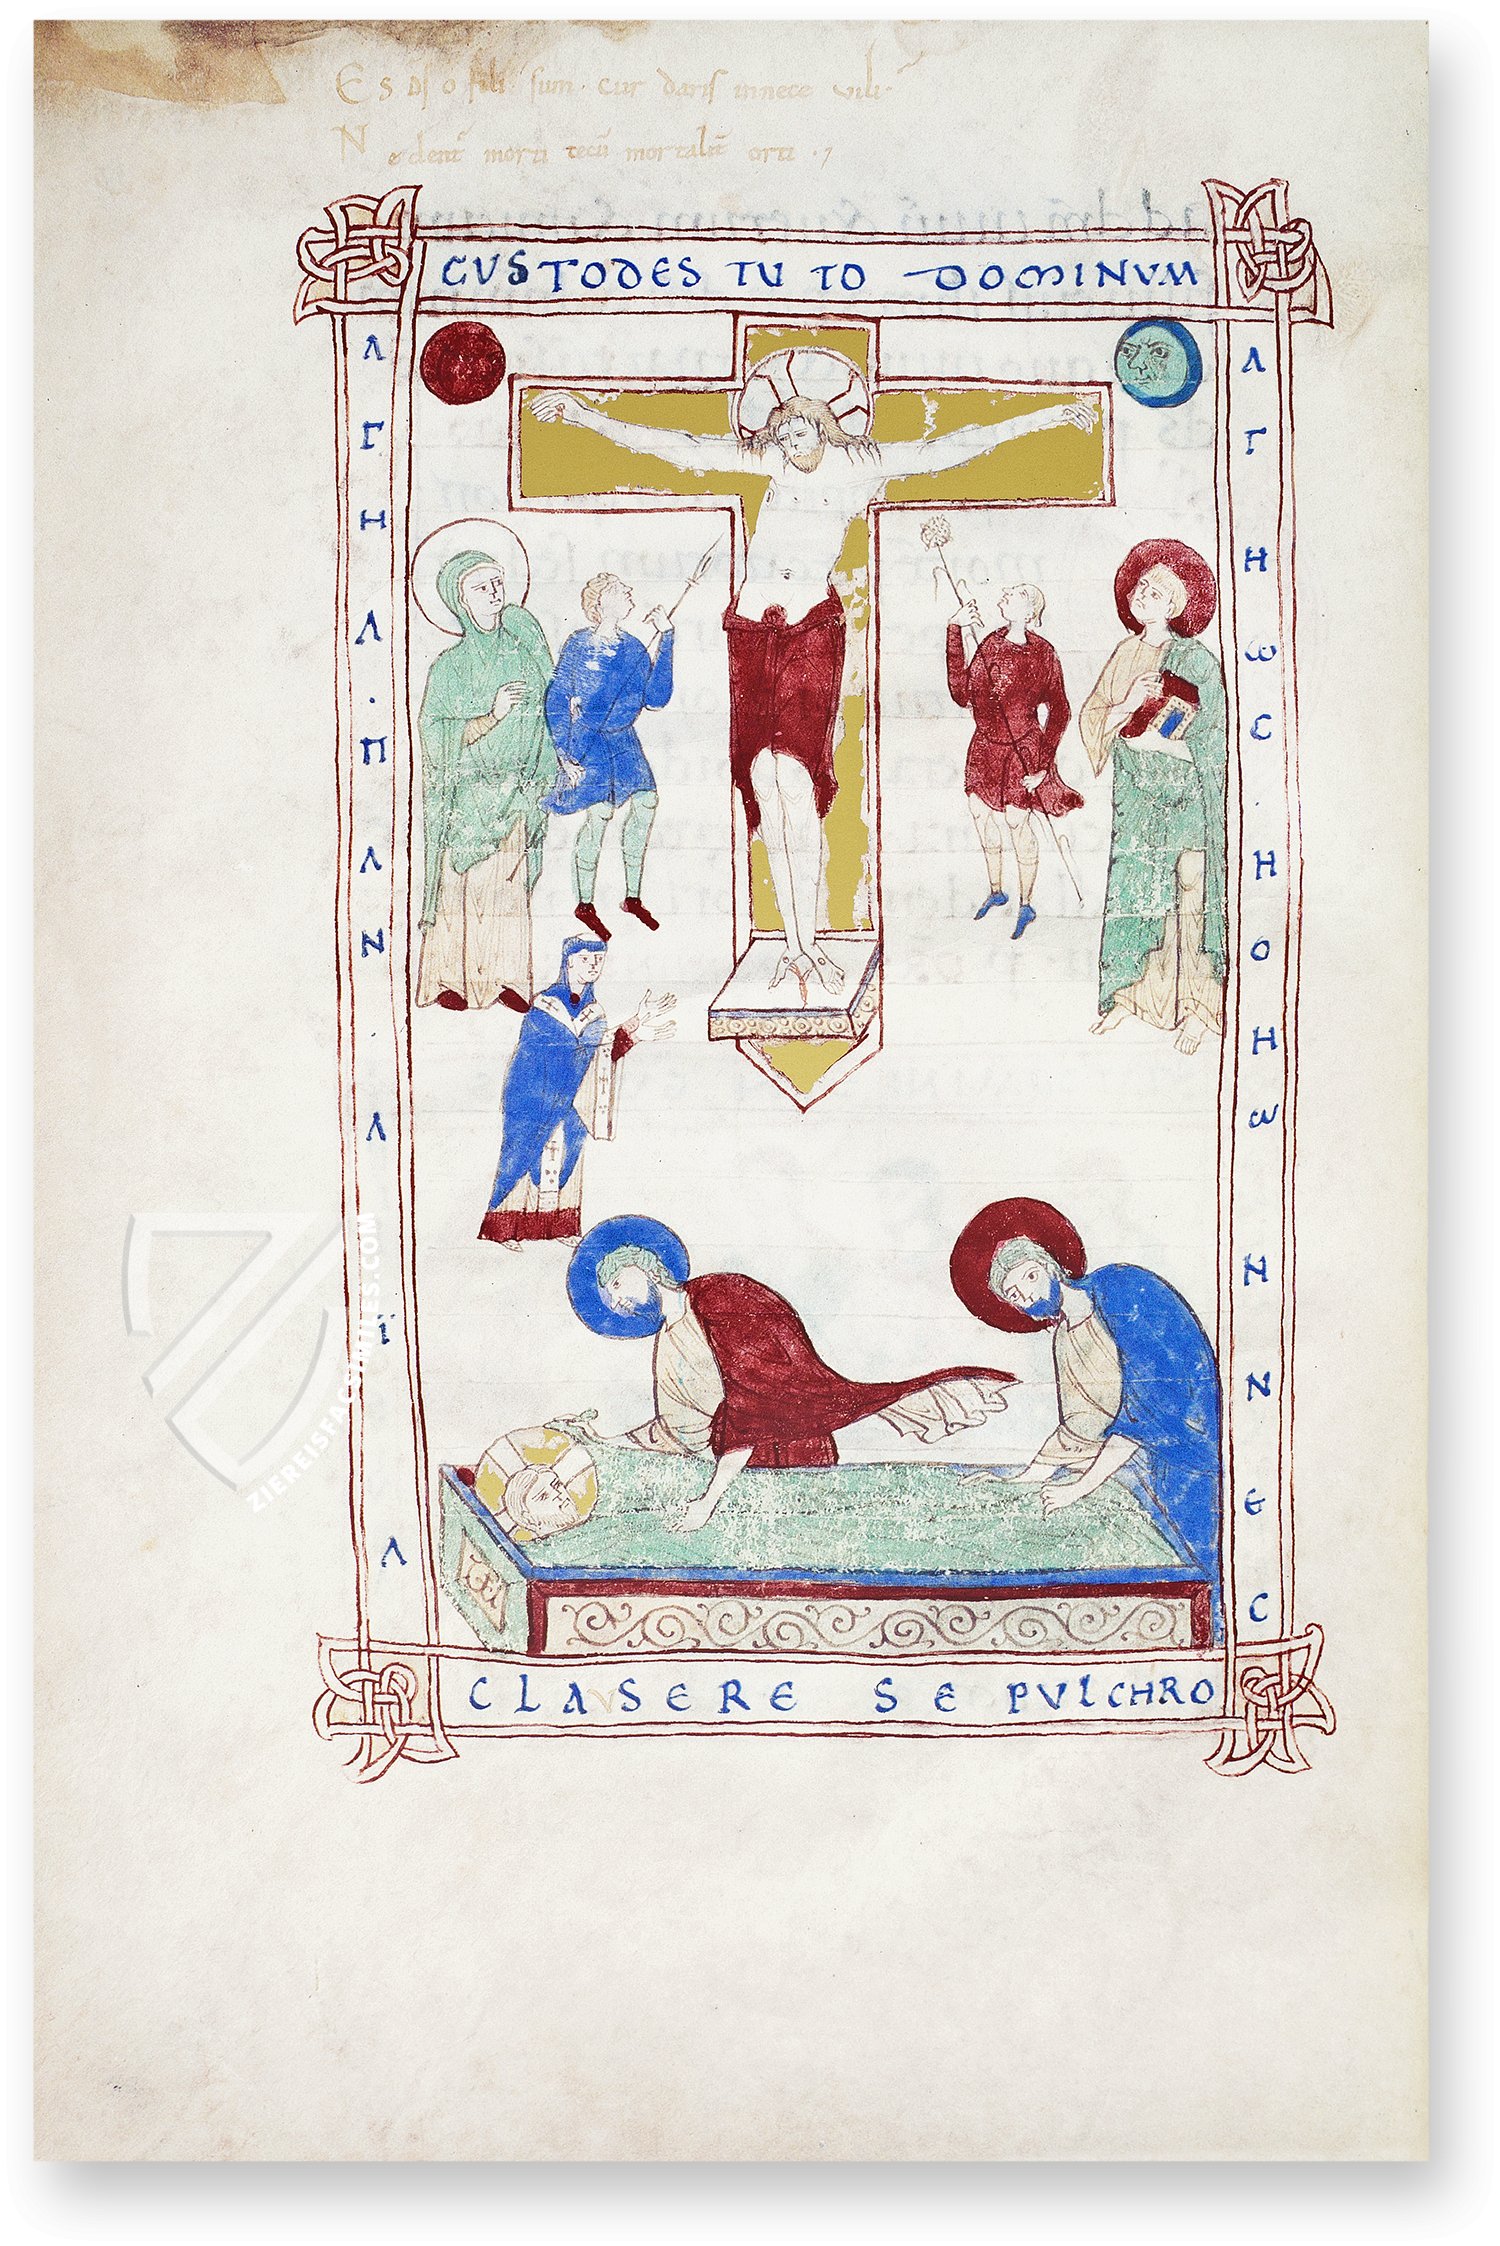 Es dš o fili sum · cur daris innece vili·
Ne dent̄ morti tecū mortalit̄ orti · 7
CUSTODES TU TO DOMINVM
Λ Γ Η Λ · Π Λ Ν · Λ Ϊ Λ
Λ Γ Η ω C · Η Ο Η ω Ν Ν Є C
CLASERE SE PVLCHRO
ZIEREISFACSIMILES.COM